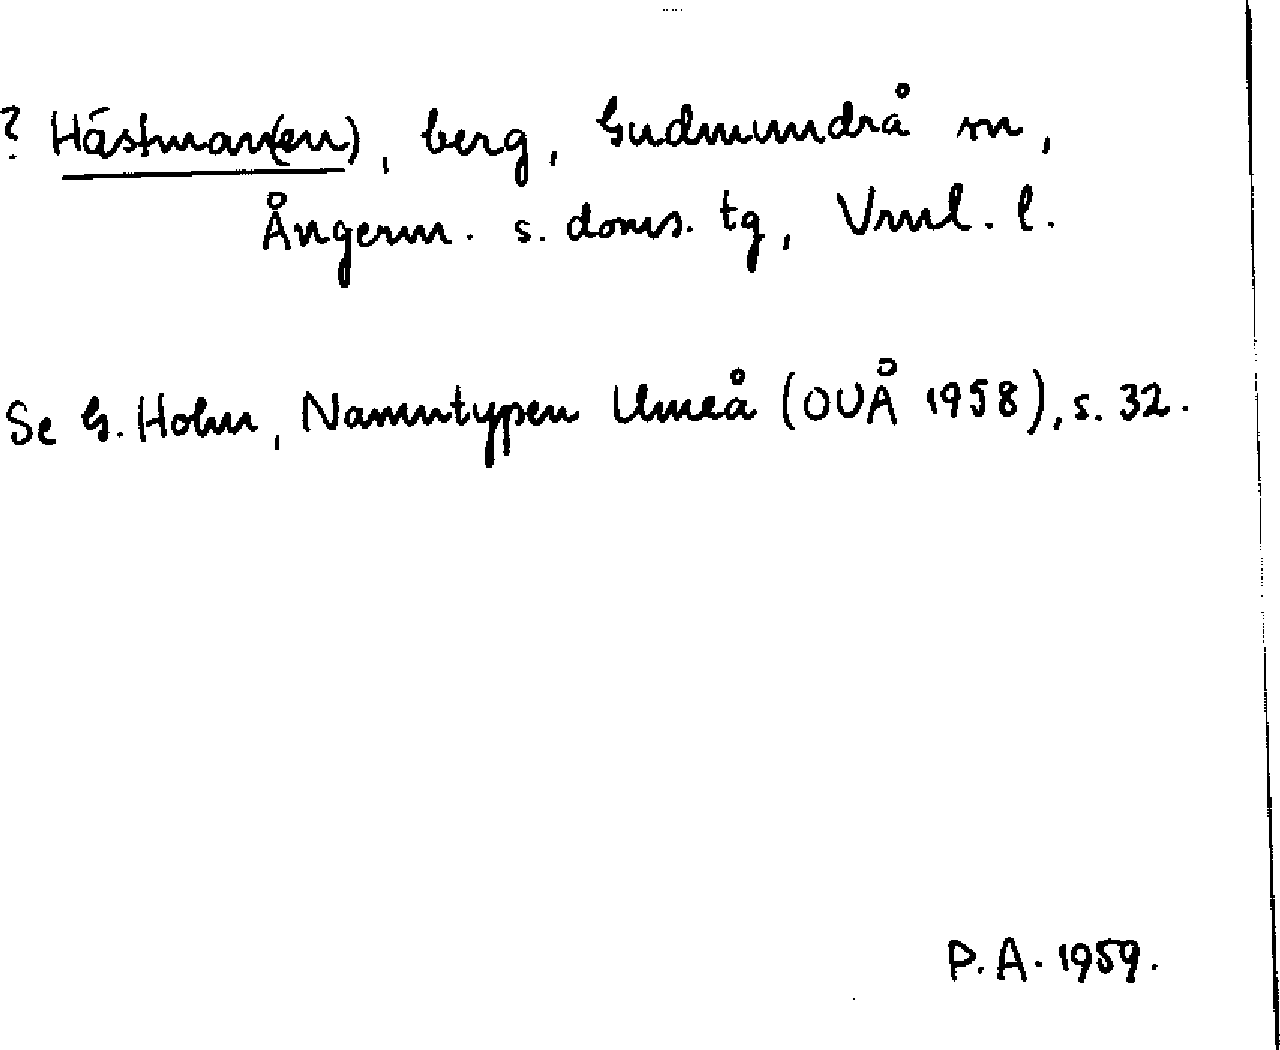 ? Hästman(en), berg, Gudmundrå sn,
Ångerm. s. doms. tg, Vrnl. l.
Se G. Holm, Namntypen Umeå (OUÅ 1958), s. 32.
P. A. 1959.